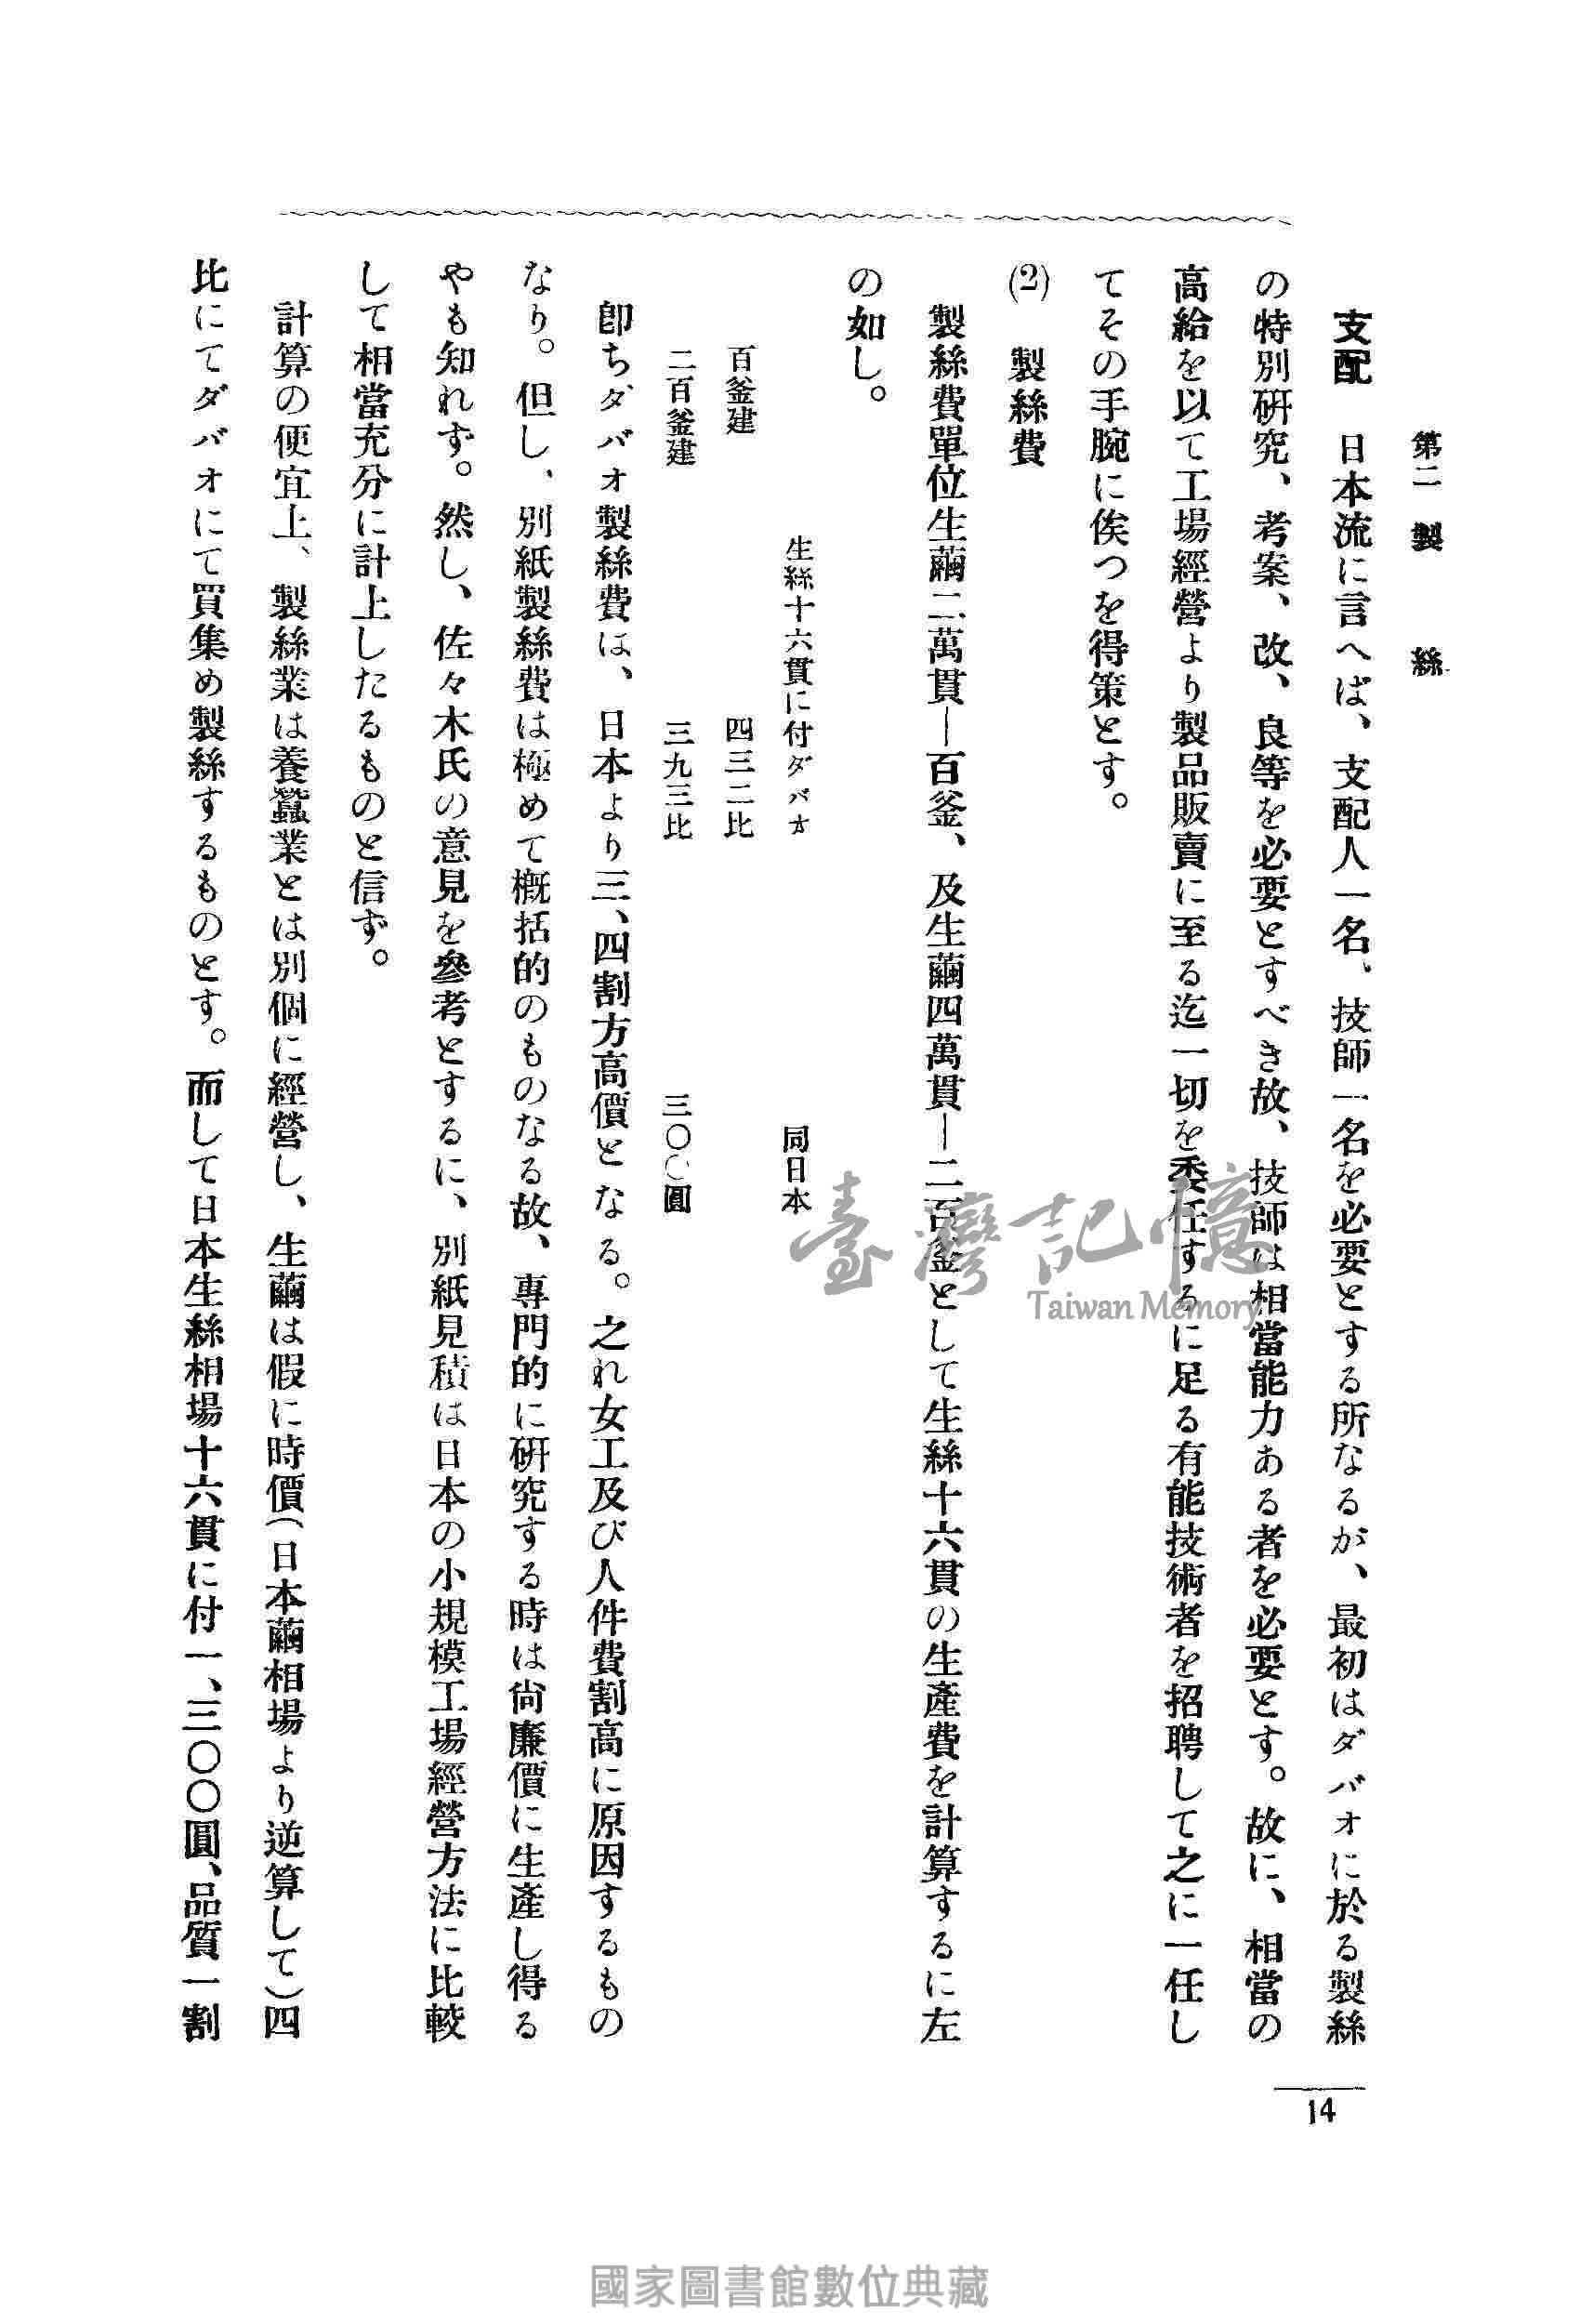 第二　製　絲
支配　日本流に言へば、支配人一名、技師一名を必要とする所なるが、最初はダバオに於る製絲
の特別研究、考案、改、良等を必要とすべき故、技師は相當能力ある者を必要とす。故に、相當の
高給を以て工場經營より製品販賣に至る迄一切を委任するに足る有能技術者を招聘して之に一任し
てその手腕に俟つを得策とす。
(2)　製絲費
製絲費單位生繭二萬貫―百釜、及生繭四萬貫―二百釜として生絲十六貫の生產費を計算するに左
の如し。
生絲十六貫に付ダバオ　同日本
百釜建　四三二比
二百釜建　三九三比　三〇〇圓
卽ちダバオ製絲費は、日本より三、四割方高價となる。之れ女工及び人件費割高に原因するもの
なり。但し、別紙製絲費は極めて槪括的のものなる故、專門的に研究する時は尙廉價に生產し得る
やも知れず。然し、佐々木氏の意見を參考とするに、別紙見積は日本の小規模工場經營方法に比較
して相當充分に計上したるものと信ず。
計算の便宜上、製絲業は養蠶業とは別個に經營し、生繭は假に時價(日本繭相場より逆算して)四
比にてダバオにて買集め製絲するものとす。而して日本生絲相場十六貫に付一、三〇〇圓、品質一割
14
臺灣記憶
Taiwan Memory
國家圖書館數位典藏